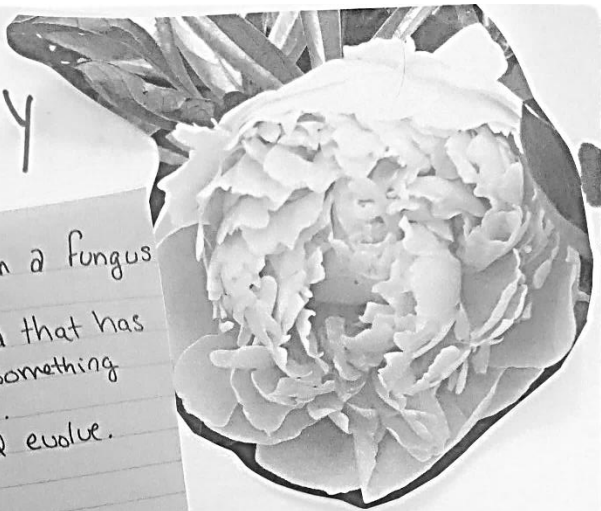 y
a fungus
that has
something
evolve.